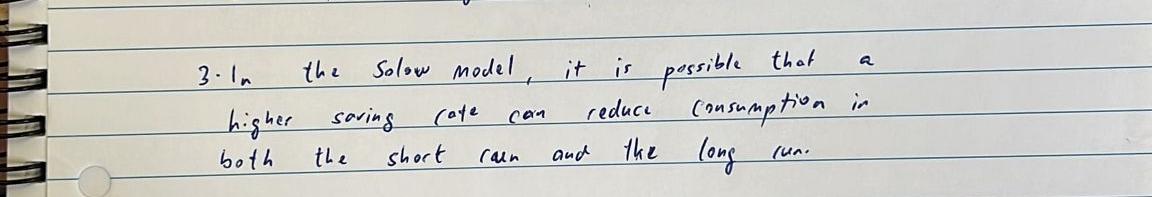 3. In the Solow model, it is possible that a
higher saving rate can reduce consumption in
both the short run and the long run.